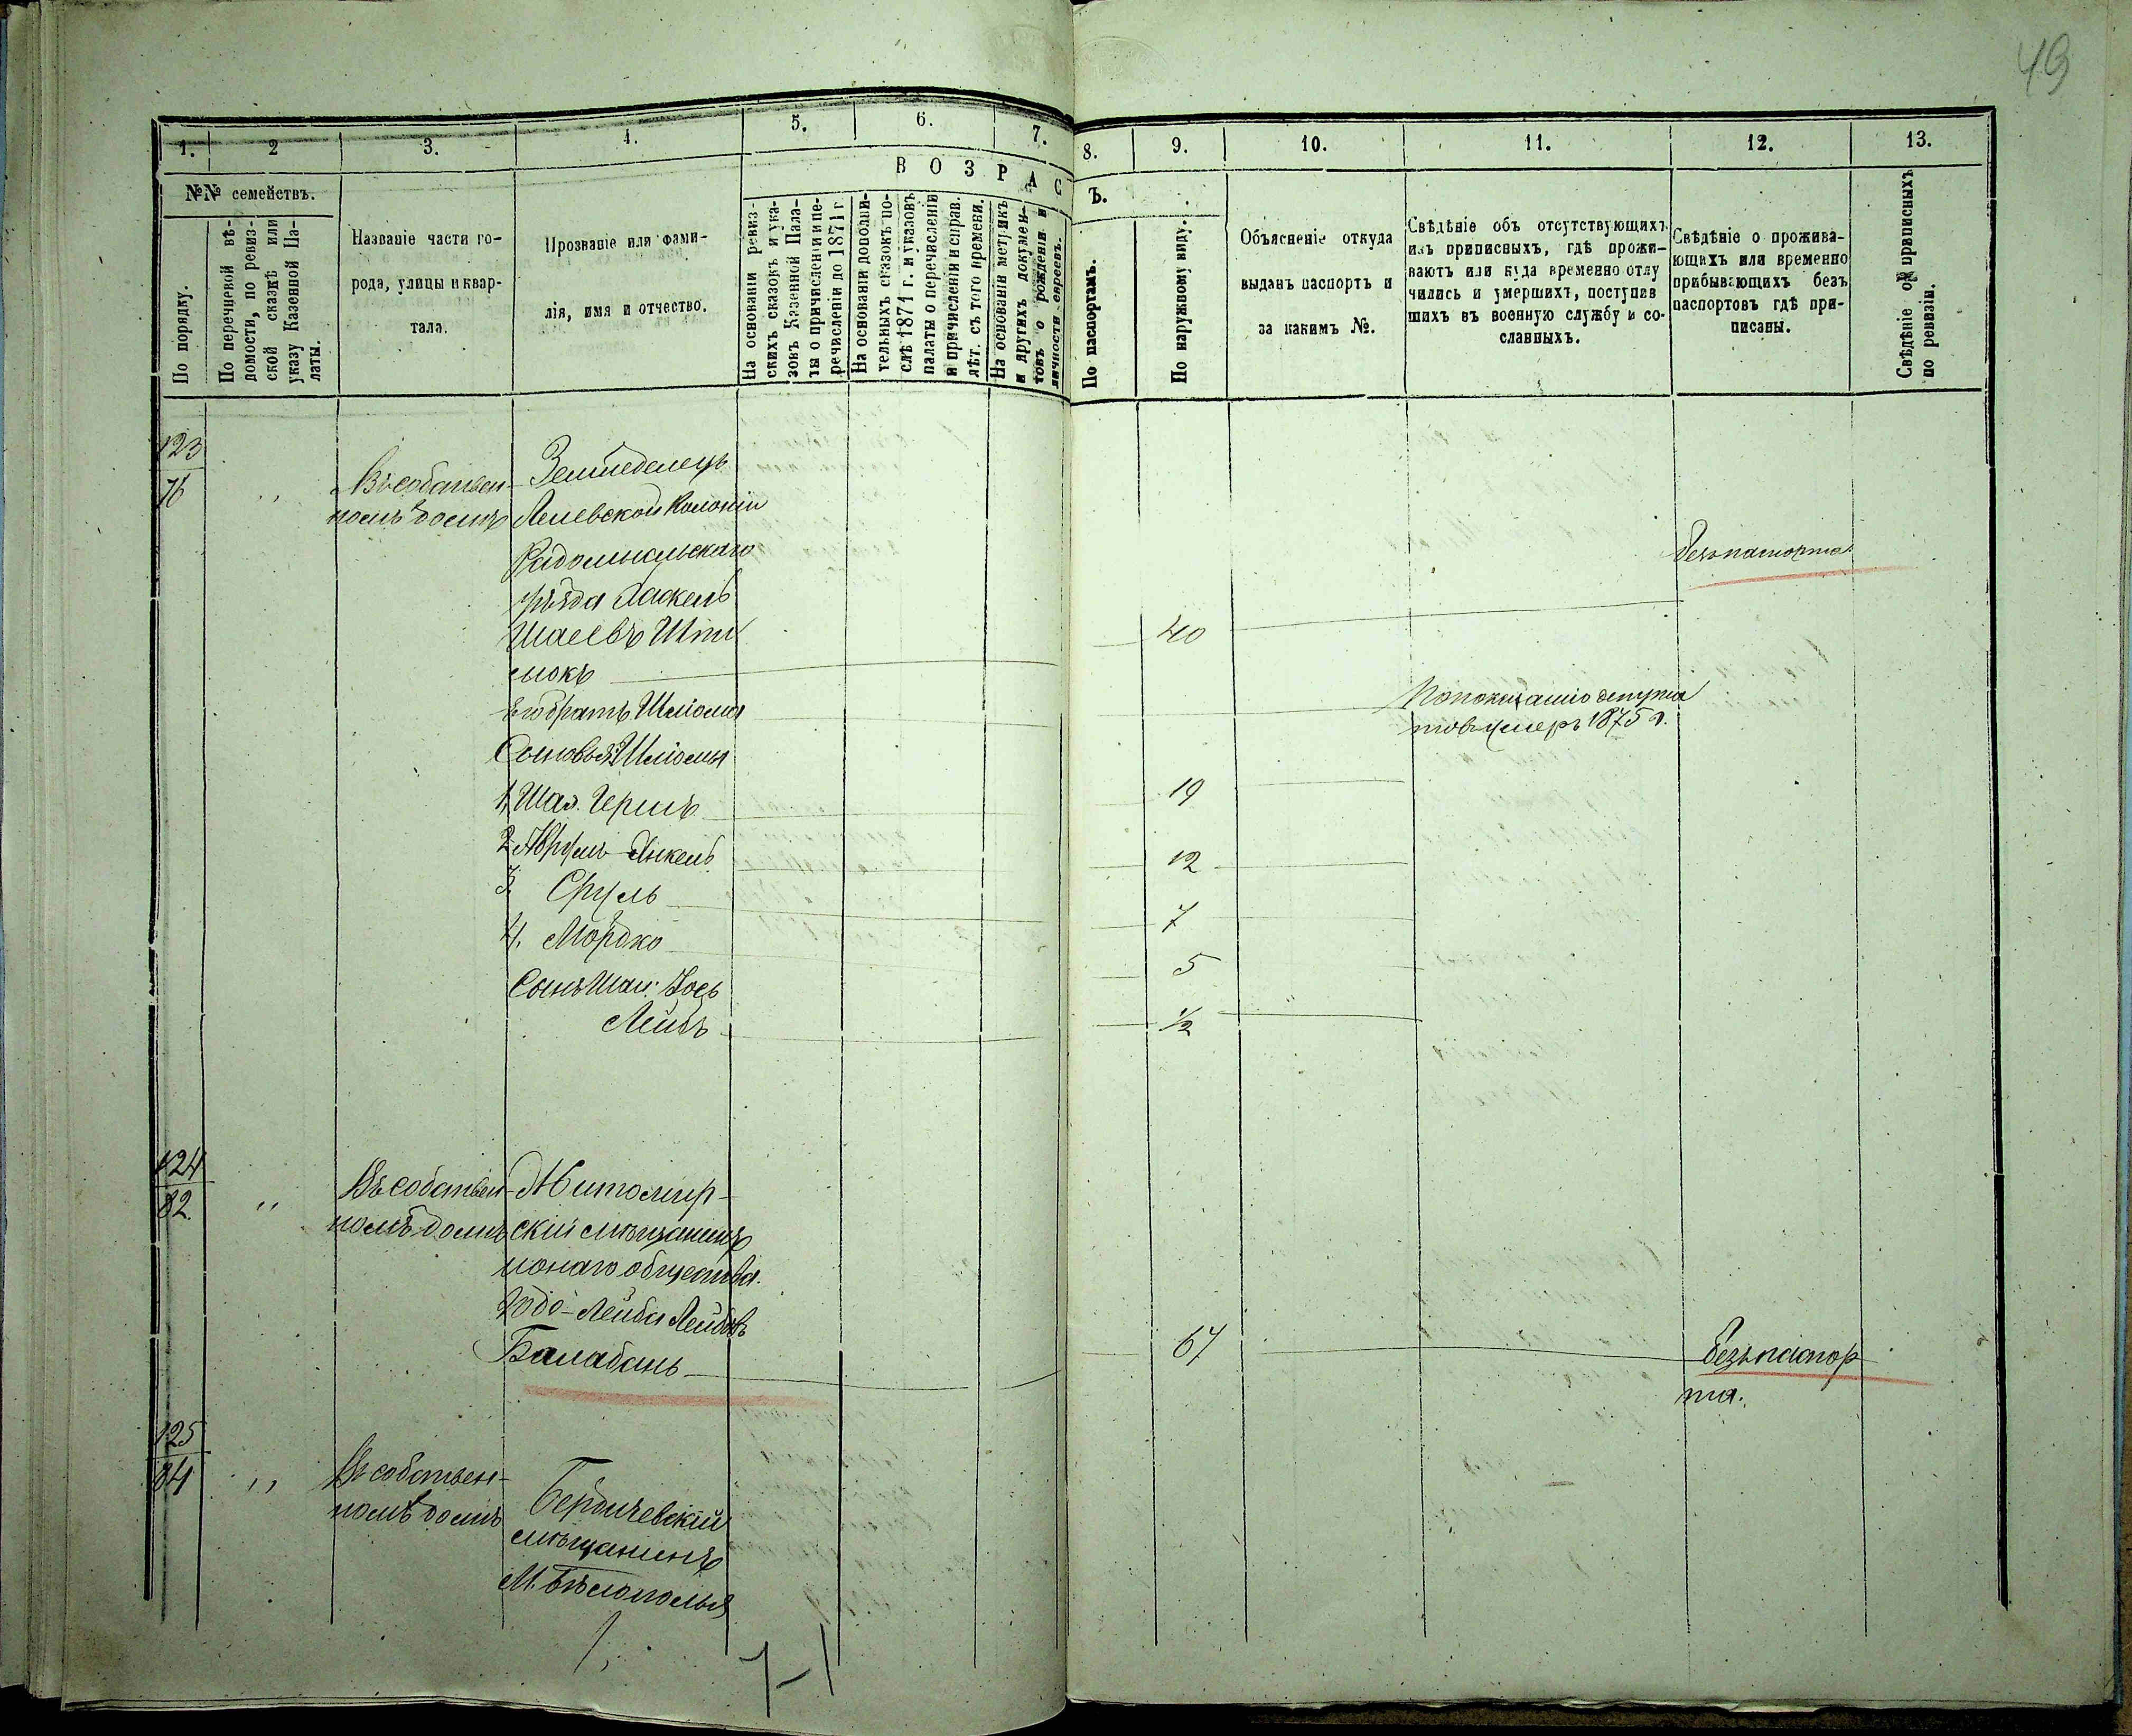 49
1.
2
3.
4.
5.
6.
7.
8.
9.
10.
11.
12.
13.
№№ семействъ.
ВОЗРАС
Ъ.
По порядку.
По перечневой вѣ-
домости, по ревиз-
ской сказкѣ или
указу Казенной Па-
латы.
Названіе части го-
рода, улицы и квар-
тала.
Прозваніе или фами-
лія, имя и отчество.
На основаніи ревиз-
скихъ сказокъ и ука-
зовъ Казенной Пала-
ты о причисленіи и пе-
речисленіи до 1871 г.
На основаніи дополни-
тельныхъ сказокъ по-
слѣ 1871 г. и указовъ
палаты о перечисленіи
и причисленіи и справ.
лѣт. съ того времени.
На основаніи метрикъ
и другихъ докумен-
товъ о рожденіи и
личности евреевъ.
По паспортамъ.
По наружному виду.
Объясненіе откуда
выданъ паспортъ и
за какимъ №.
Свѣдѣніе объ отсутствующихъ
изъ приписныхъ, гдѣ прожи-
ваютъ или куда временно отлу
чились и умершихъ, поступив
шихъ въ военную службу и со-
сланныхъ.
Свѣдѣніе о прожива-
ющихъ или временно
прибывающихъ безъ
паспортовъ гдѣ при-
писаны.
Свѣдѣніе о приписныхъ
по ревизіи.
123
76
Въ собствен-
номъ домѣ
Земледелецъ
колоніи
Радомысльскаго
уѣзда Хаскель
Шаевъ Шпи
локъ
40
Безъ паспорта
Его братъ Шліома
По показанію депута
товъ умеръ 1875 г.
Сыновья Шліомы
1, Шая Гершъ
19
2 Аврумъ Янкель
12
3, Сруль
7
4, Мордко
5
Сынъ Шаи: Іось
Лейбъ
1/2
124
82
Въ собствен-
номъ домѣ
Житомир-
скій мѣщанинъ
общества
Юдо-Лейба Лейбовъ
Балабанъ
67
Безъ паспор
та.
125
84
Въ собствен-
номъ домѣ
Бердичевскій
мѣщанинъ
М. Бѣлополья
7-1